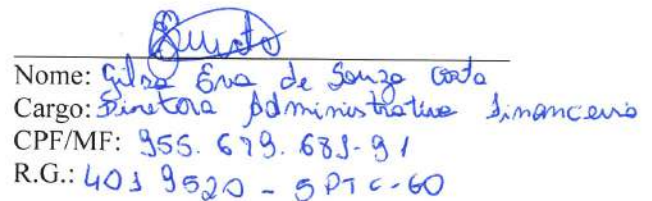 Nome: Gilza Eva de Souza Costa
Cargo: Diretora Administrativa Financeira
CPF/MF: 955.679.681-91
R.G.: 401 9520 - SPTC-GO